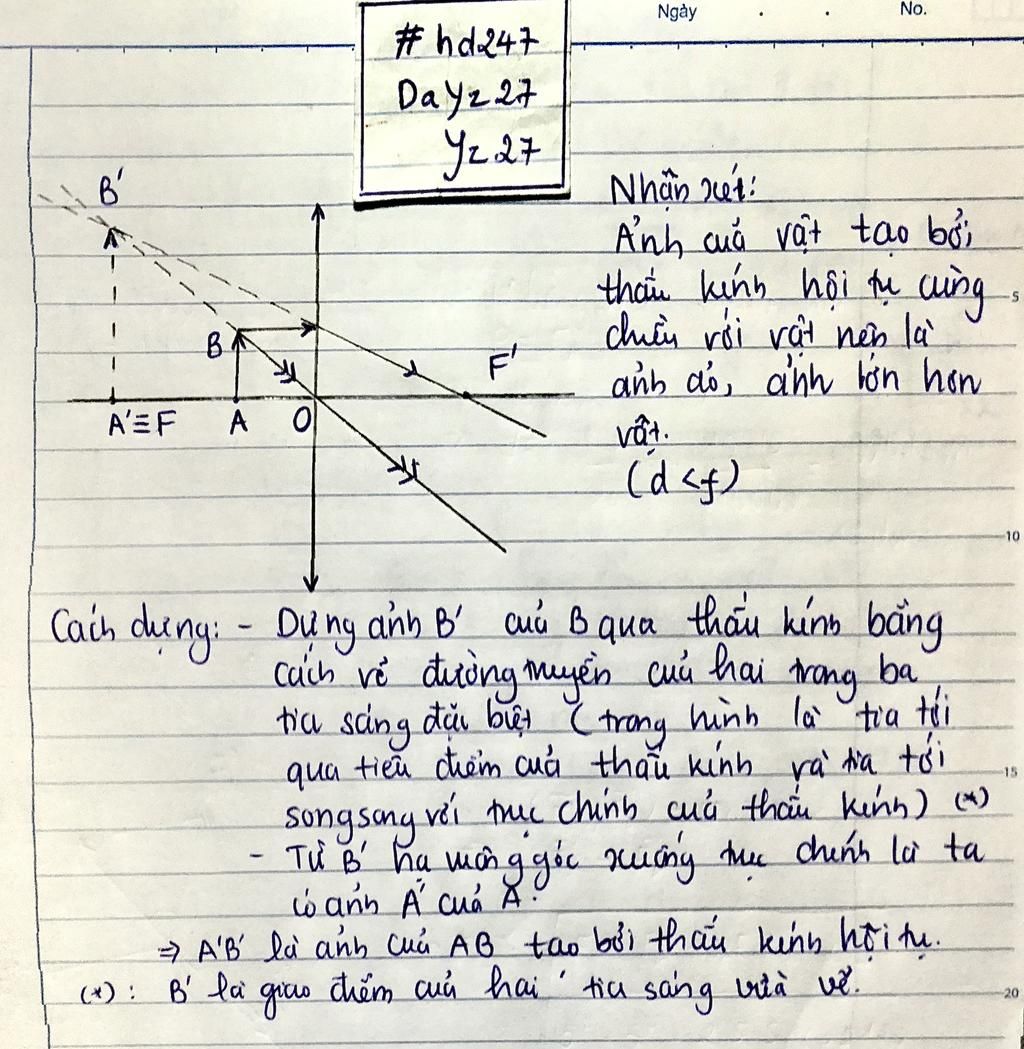 Ngày . . No.
# hd247
DaYz27
Yz27
B'
B
F'
A'≡F
A
O
Nhận xét:
Ảnh của vật tạo bởi
thấu kính hội tụ cùng
chiều với vật nên là
ảnh ảo, ảnh lớn hơn
vật.
(d < f)
5
10
Cách dựng: - Dựng ảnh B' của B qua thấu kính bằng
cách vẽ đường truyền của hai trong ba
tia sáng đặc biệt (trong hình là tia tới
qua tiêu điểm của thấu kính và tia tới
song song với trục chính của thấu kính) (*)
15
- Từ B' hạ vuông góc xuống trục chính là ta
có ảnh A' của A.
⇒ A'B' là ảnh của AB tạo bởi thấu kính hội tụ.
(*): B' là giao điểm của hai tia sáng vừa vẽ.
20